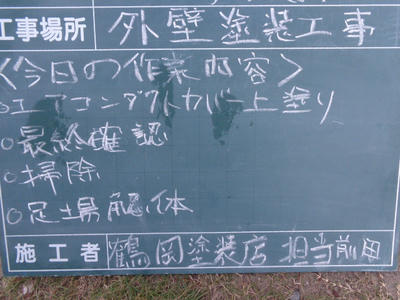 工事場所 外壁塗装工事
＜今日の作業内容＞
○エアコンダクトカバー上塗り
○最終確認
○掃除
○足場解体
施工者 鶴岡塗装店 担当前田